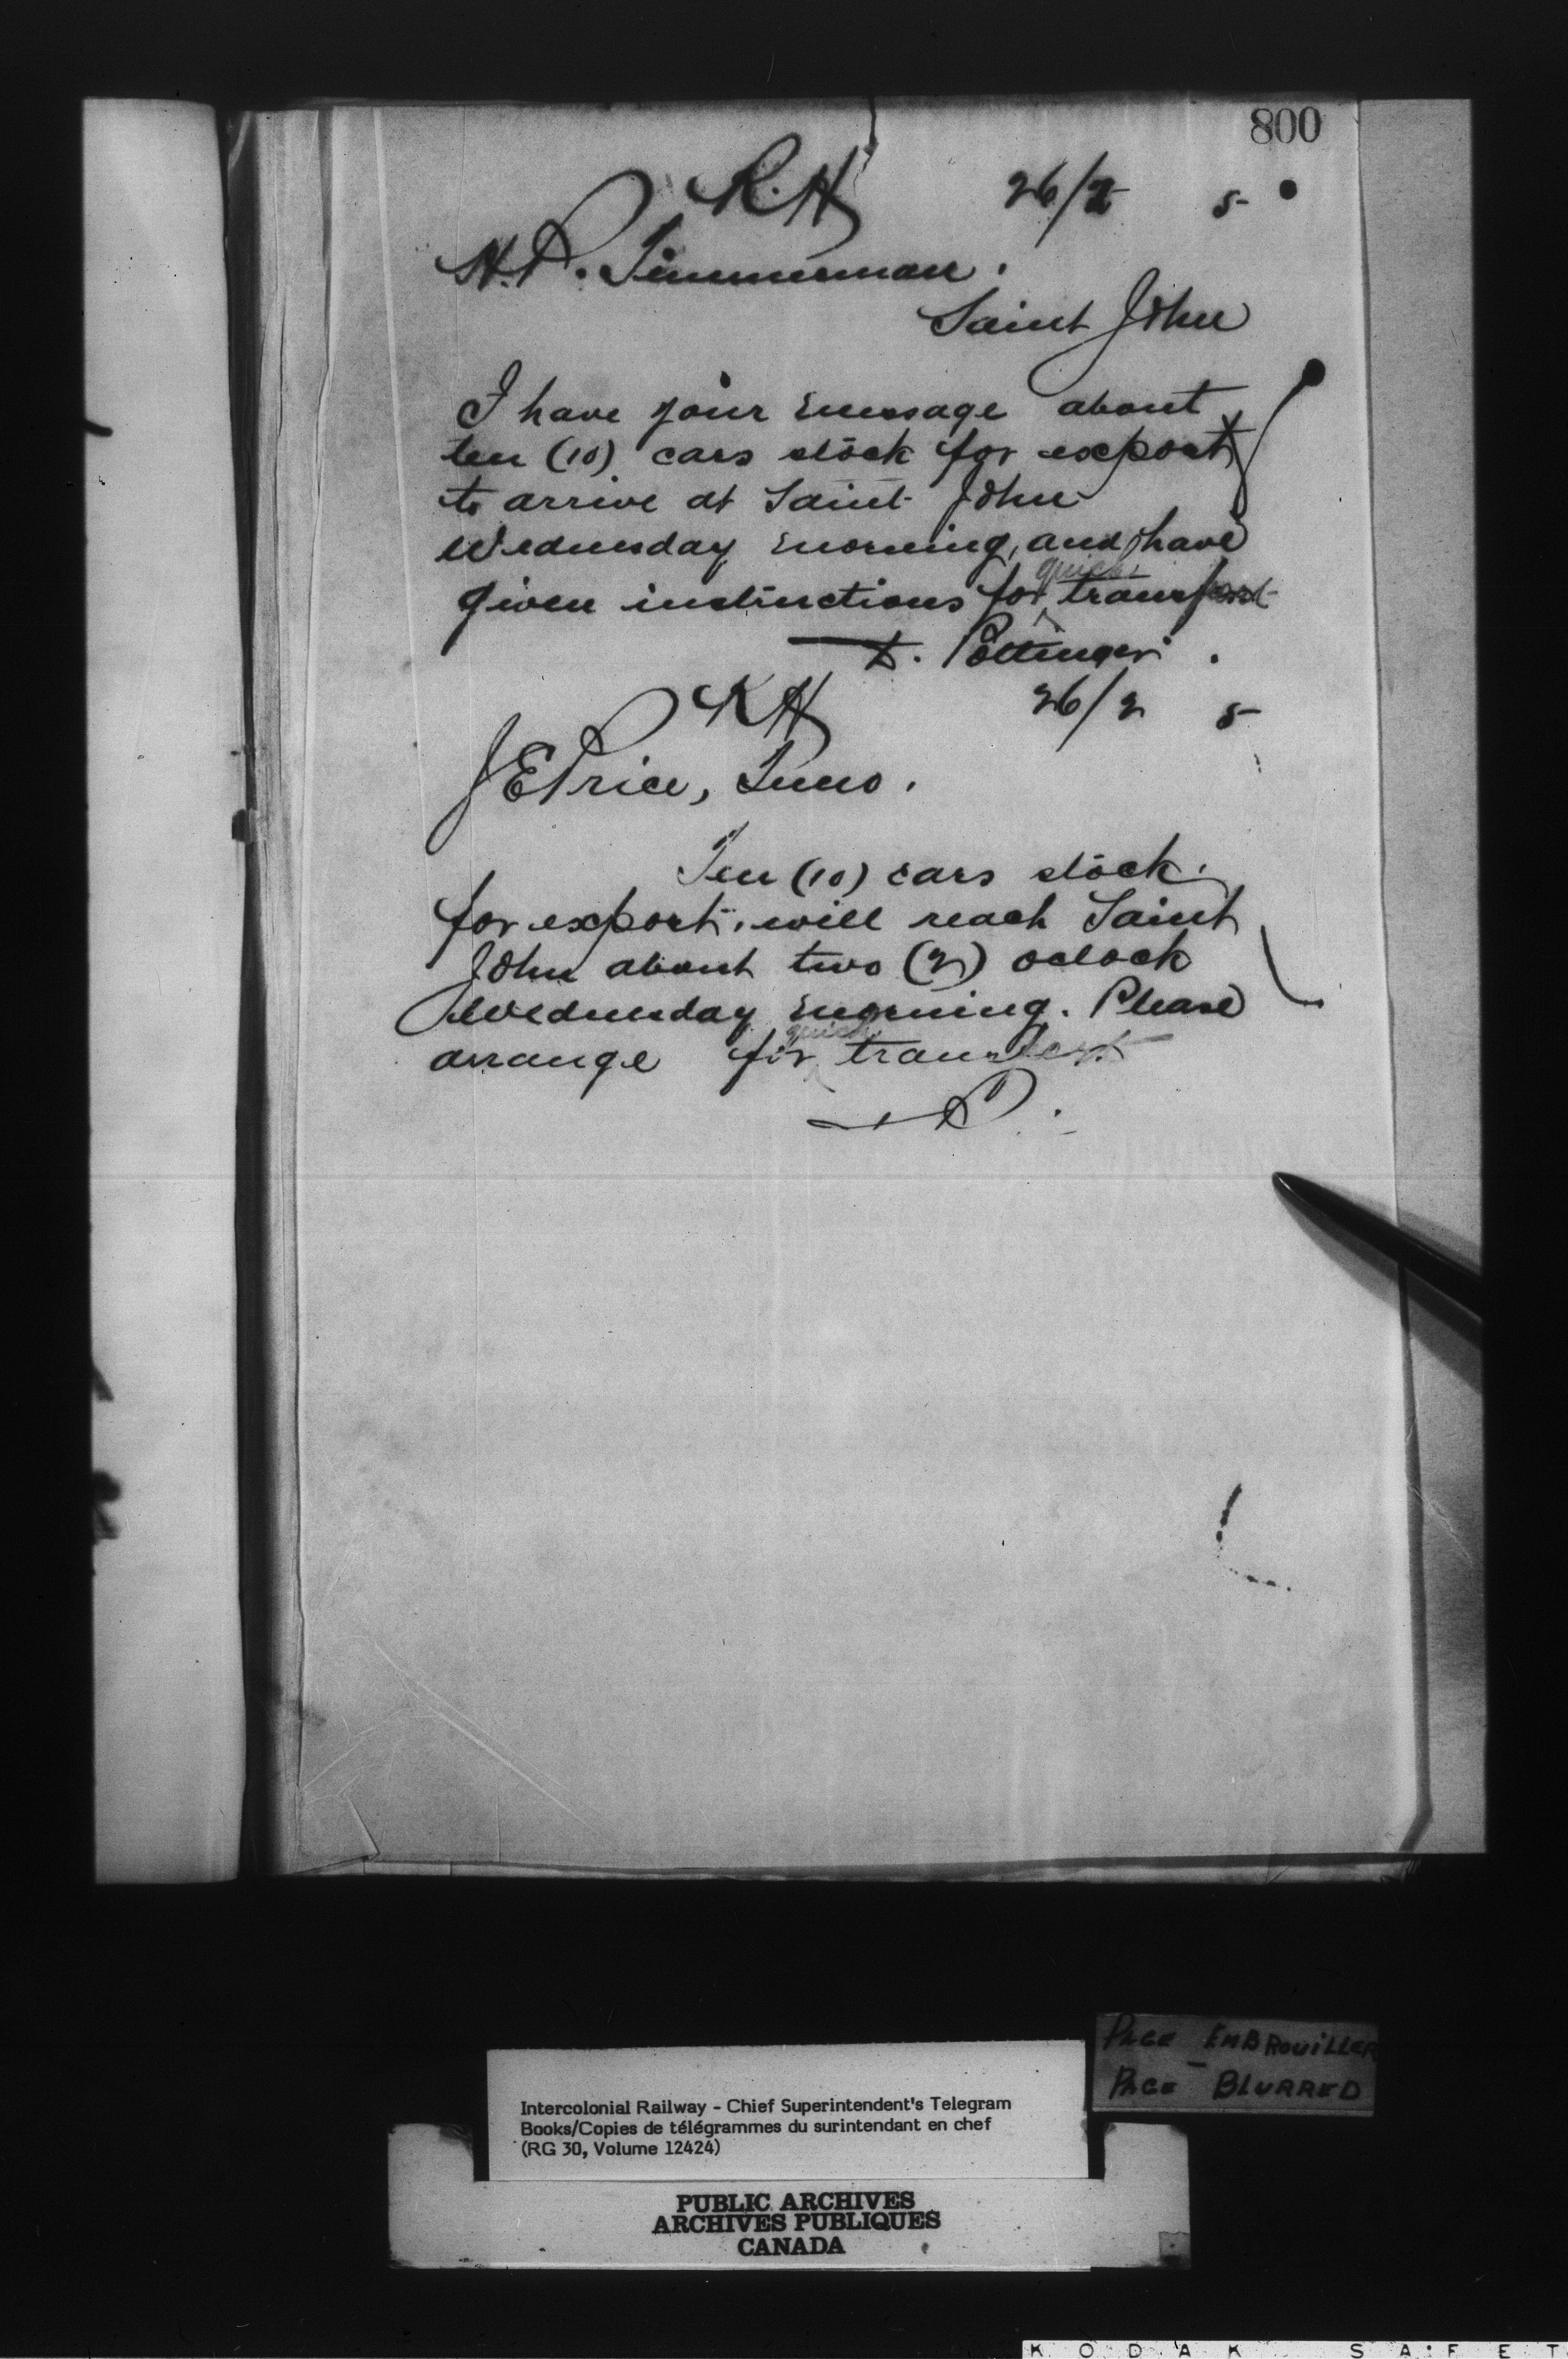 800
R.H 26/2 5
H.P. Timmerman.
Saint John
I have your message about
ten (10) cars stock for export
to arrive at Saint John
Wednesday morning, and have
quick
given instructions for transfer
D. Pottinger.
RH 26/2 5
J E Price, Truro.
Ten (10) cars stock
for export, will reach Saint
John about two (2) oclock
Wednesday morning. Please
quick
arrange for transfer
DP.
PAGE EMBROUILLER
PAGE BLURRED
Intercolonial Railway - Chief Superintendent's Telegram
Books/Copies de télégrammes du surintendant en chef
(RG 30, Volume 12424)
PUBLIC ARCHIVES
ARCHIVES PUBLIQUES
CANADA
KODAK SAFET